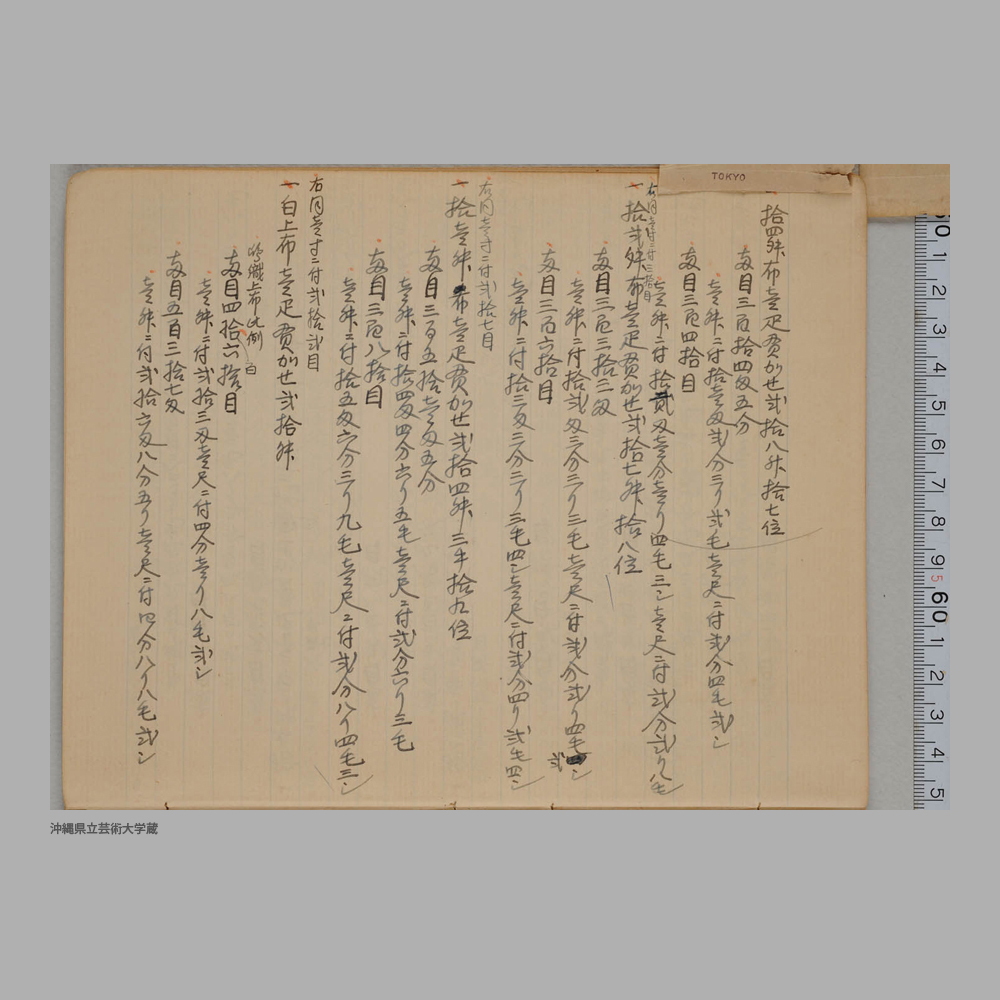 TOKYO
一 拾四舛布壱疋貫かせ弐拾八舛拾七位
両目三百拾四匁五分
壱舛ニ付拾壱匁弐分三リ弐毛壱尺ニ付弐分四毛弐シ
両目三百四拾目
壱舛ニ付拾弐匁壱分壱リ四毛三シ壱尺ニ付弐分弐リ八毛
右同壱寸ニ付三拾目
一 拾弐舛布壱疋貫かせ弐拾七舛拾八位
両目三百三拾三匁
壱舛ニ付拾弐匁三分三リ三毛壱尺ニ付弐分弐リ四毛弐シ
両目三百六拾目
壱舛ニ付拾三匁三分三リ三毛四シ壱尺ニ付弐分四リ弐毛四シ
右同壱寸ニ付弐拾七目
一 拾壱舛布壱疋貫かせ弐拾四舛三半拾九位
両目三百五拾壱匁五分
壱舛ニ付拾四匁四分六リ五毛壱尺ニ付弐分六リ三毛
両目三百八拾目
壱舛ニ付拾五匁六分三リ九毛壱尺ニ付弐分八リ四毛三シ
右同壱寸ニ付弐拾弐目
一 白上布壱疋貫かせ弐拾舛
嶋織上布此例
白
両目四拾六拾目
壱舛ニ付弐拾三匁壱尺ニ付四分壱リ八毛弐シ
両目五百三拾七匁
壱舛ニ付弐拾六匁八分五リ壱尺ニ付四分八リ八毛弐シ
0 1 2 3 4 5 6 7 8 9 60 1 2 3 4 5
沖縄県立芸術大学蔵